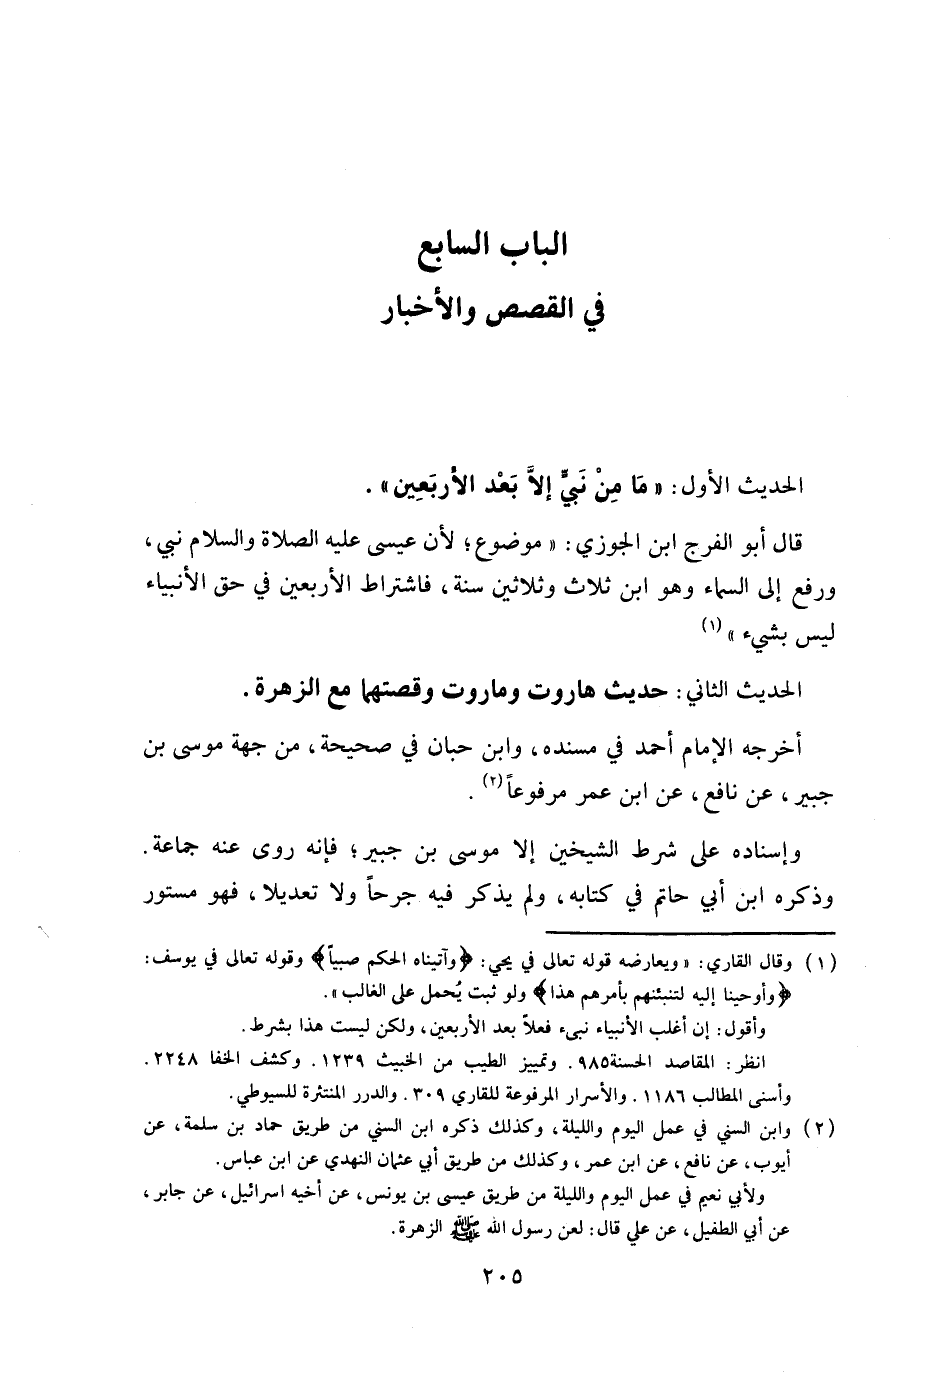 الباب السابع
في القصص والأخبار
الحديث الأول: « مَا مِنْ نَبِيٍّ إلاَّ بَعْد الأربَعِين» .
قال أبو الفرج ابن الجوزي: « موضوع؛ لأن عيسى عليه الصلاة والسلام نبي،
ورفع إلى السماء وهو ابن ثلاث وثلاثين سنة، فاشتراط الأربعين في حق الأنبياء
ليس بشيء » (١)
الحديث الثاني: حديث هاروت وماروت وقصتهما مع الزهرة .
أخرجه الإمام أحمد في مسنده، وابن حبان في صحيحة، من جهة موسى بن
جبير، عن نافع، عن ابن عمر مرفوعاً(٢) .
وإسناده على شرط الشيخين إلا موسى بن جبير؛ فإنه روى عنه جماعة.
وذكره ابن أبي حاتم في كتابه، ولم يذكر فيه جرحاً ولا تعديلا، فهو مستور
(١) وقال القاري: « ويعارضه قوله تعالى في يحي: ﴿وآتيناه الحكم صبياً﴾ وقوله تعالى في يوسف:
﴿وأوحينا إليه لتنبئنهم بأمرهم هذا﴾ ولو ثبت يُحمل على الغالب ».
وأقول: إن أغلب الأنبياء نبىء فعلاً بعد الأربعين، ولكن ليست هذا بشرط.
انظر: المقاصد الحسنة٩٨٥. وتمييز الطيب من الخبيث ١٢٣٩. وكشف الخفا ٢٢٤٨.
وأسنى المطالب ١١٨٦. والأسرار المرفوعة للقاري ٣٠٩. والدرر المنتثرة للسيوطي.
(٢) وابن السني في عمل اليوم والليلة، وكذلك ذكره ابن السني من طريق حماد بن سلمة، عن
أيوب، عن نافع، عن ابن عمر، وكذلك من طريق أبي عثمان النهدي عن ابن عباس.
ولأبي نعيم في عمل اليوم والليلة من طريق عيسى بن يونس، عن أخيه اسرائيل، عن جابر،
عن أبي الطفيل، عن علي قال: لعن رسول الله ﷺ الزهرة.
٢٠٥